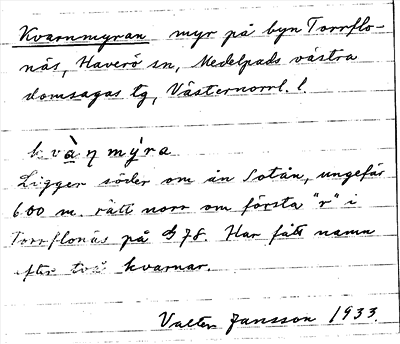 Kvarnmyran myr på byn Torrflo-
näs, Haverö sn, Medelpads västra
domsagas tg, Västernorrl. l.
kvàṇ mýra
Ligger söder om ån Sotån, ungefär
600 m. rätt norr om första "r" i
Torrflonäs på 78. Har fått namn
efter två kvarnar.
Valter Jansson 1933.